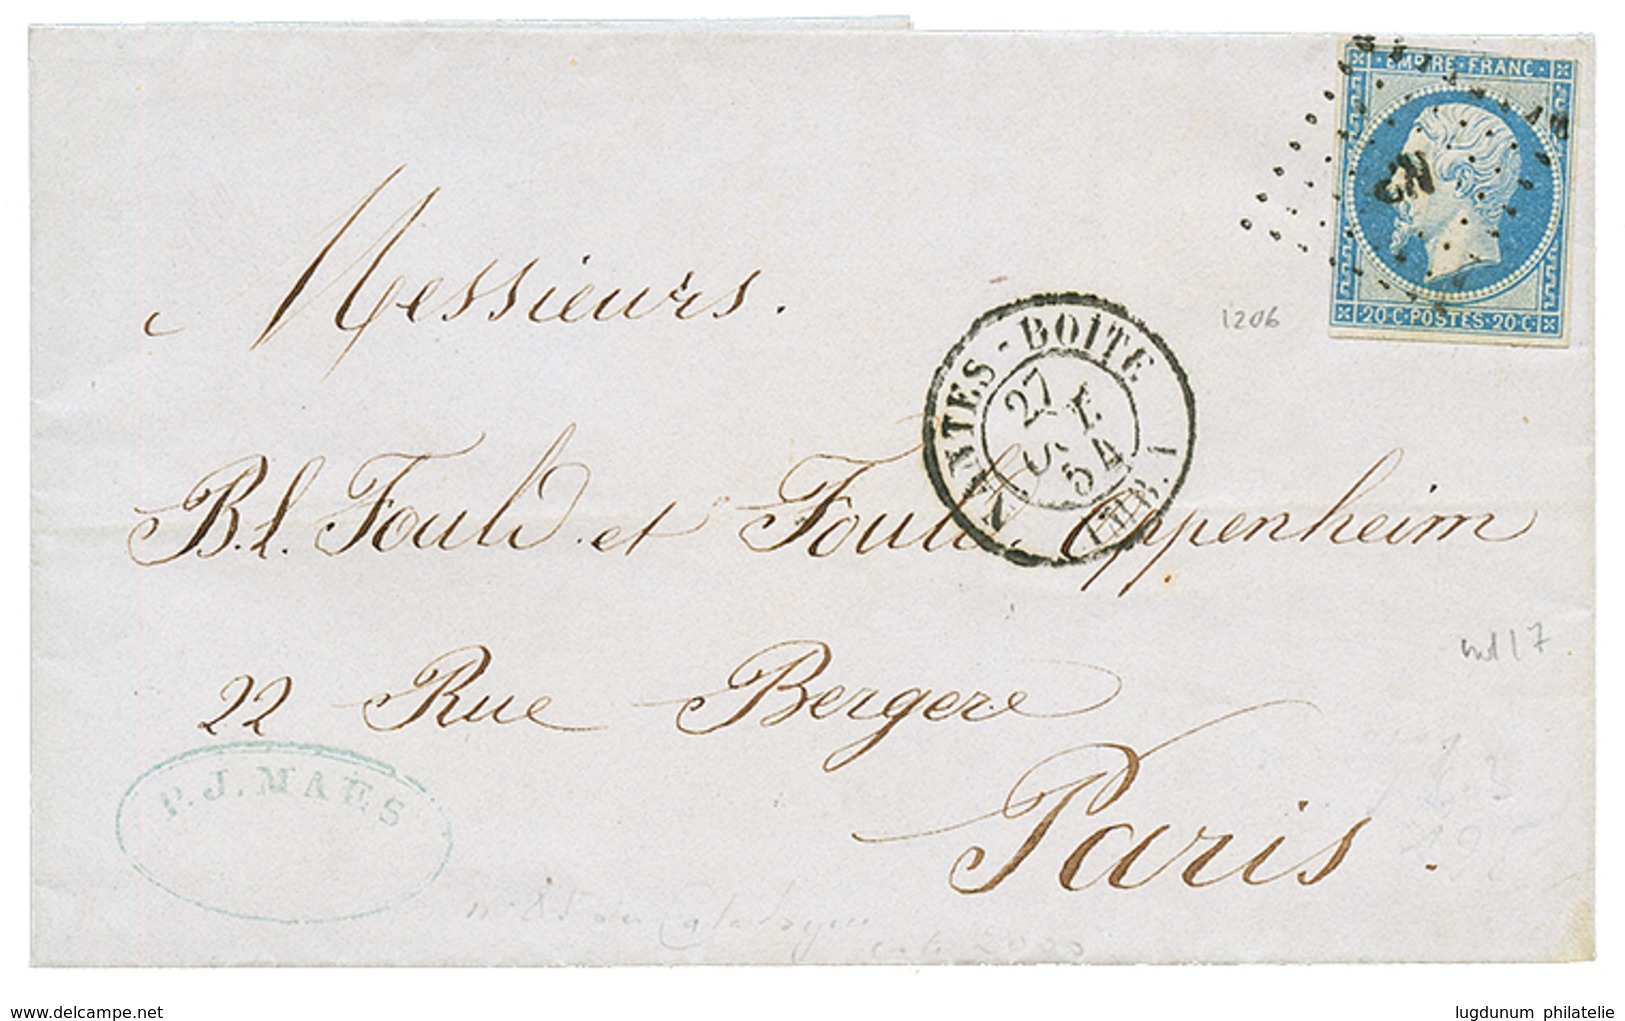 EMPIRE · FRANC ·
20·C·POSTES·20·C·
1206
NANTES - BOITE
27
54
Messieurs.
B.L. Fould et Fould. Oppenheim
22 Rue Bergere
Paris.
P. J. MAES
www.delcampe.net
lugdunum philatelie